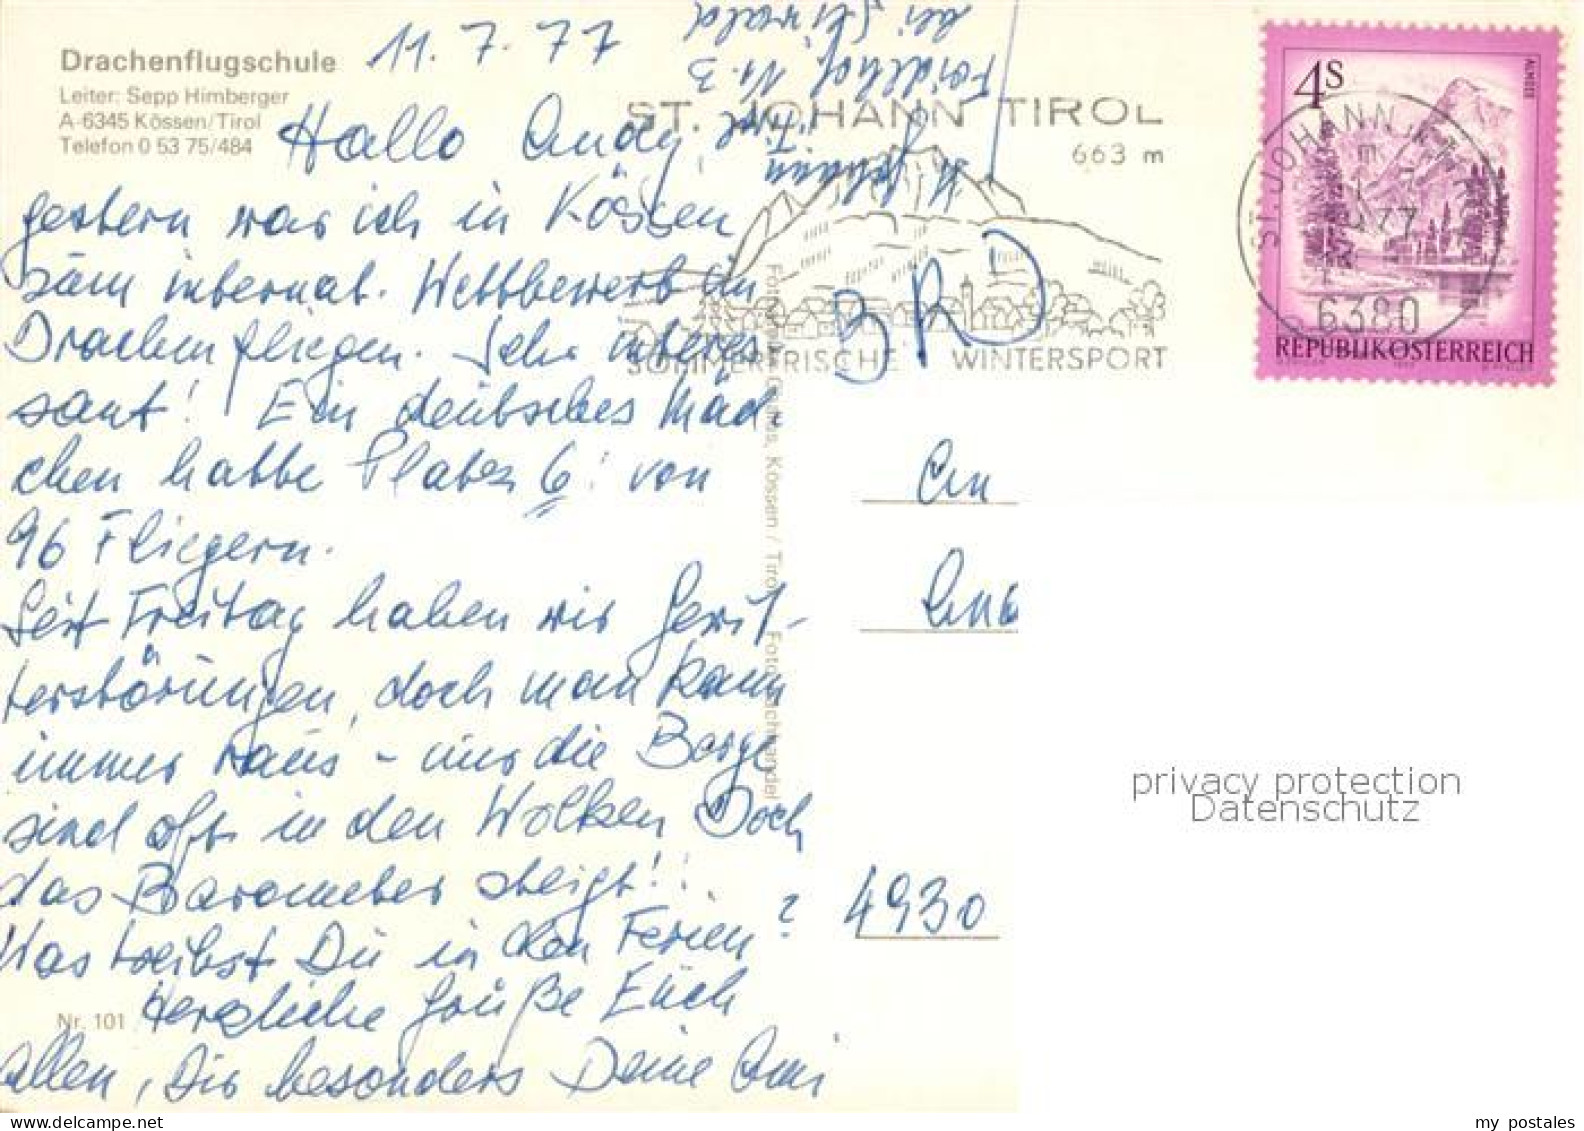 Drachenflugschule
Leiter: Sepp Himberger
A-6345 Kössen/Tirol
Telefon 0 53 75/484
11. 7. 77
Hallo Andy,
gestern war ich in Kössen
zum internat. Wettbewerb im
Drachenfliegen. Sehr interes-
sant! Ein deutsches Mäd-
chen hatte Platz 6! von
96 Fliegern.
Seit Freitag haben wir Gewit-
terstörungen, doch man kann
immer raus - nur die Berge
sind oft in den Wolken. Doch
das Barometer steigt!!
Was treibst Du in den Ferien?
Herzliche Grüße Euch
allen, Dir besonders Deine Omi
Nr. 101
St. Johann
Tirol
Nr. 3
bei
ST. JOHANN TIROL
663 m
SOMMERFRISCHE WINTERSPORT
Kössen / Tirol
BRD
4S
ALMSEE
REPUBLIK ÖSTERREICH
ST. JOHANN
77
6380
An
4930
privacy protection
Datenschutz
my postales